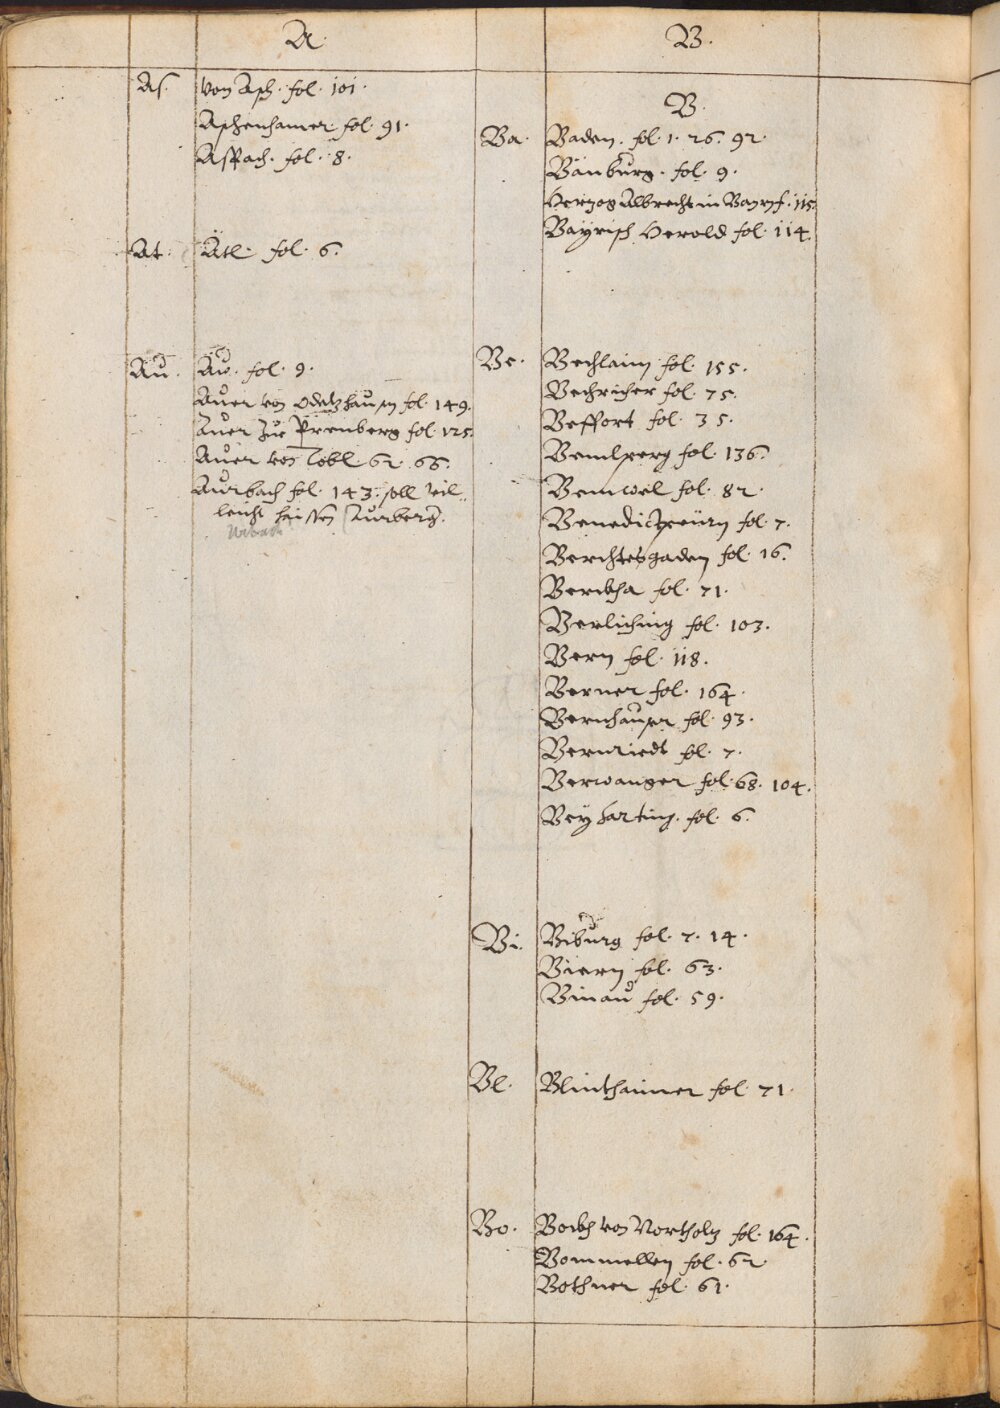 A.
As. von Asch. fol. 101.
Aschenhamer fol. 91.
Aspach. fol. 8.
At. Ätl. fol. 6.
Au. Aw. fol. 9.
Auer von Odelzhausen fol. 149.
Auer zue Prenberg fol. 125.
Auer von Tobl. 62. 66.
Aurbach fol. 143. soll vil
leicht haissen Aurberg.
B.
B.
Ba. Baden. fol. 1. 26. 92.
Bänburg. fol. 9.
Herzog Albrecht in Bayrn f. 115.
Bayrisch Herold fol. 114.
Be. Bechlaim fol. 155.
Bechricher fol. 75.
Beffort fol. 35.
Bemlperg fol. 136.
Bemwel fol. 82.
Benedictpeürn fol. 7.
Berchtesgaden fol. 16.
Berckha fol. 71.
Berliching fol. 103.
Bern fol. 118.
Berner fol. 164.
Bernhauser fol. 93.
Bernriedt fol. 7.
Berwanger fol. 68. 104.
Beyharting. fol. 6.
Bi. Biburg fol. 7. 14.
Biern fol. 63.
Binau fol. 59.
Bl. Blinthaimer fol. 71.
Bo. Bockh von Northolz fol. 164.
Bommellen fol. 62.
Bothner fol. 61.